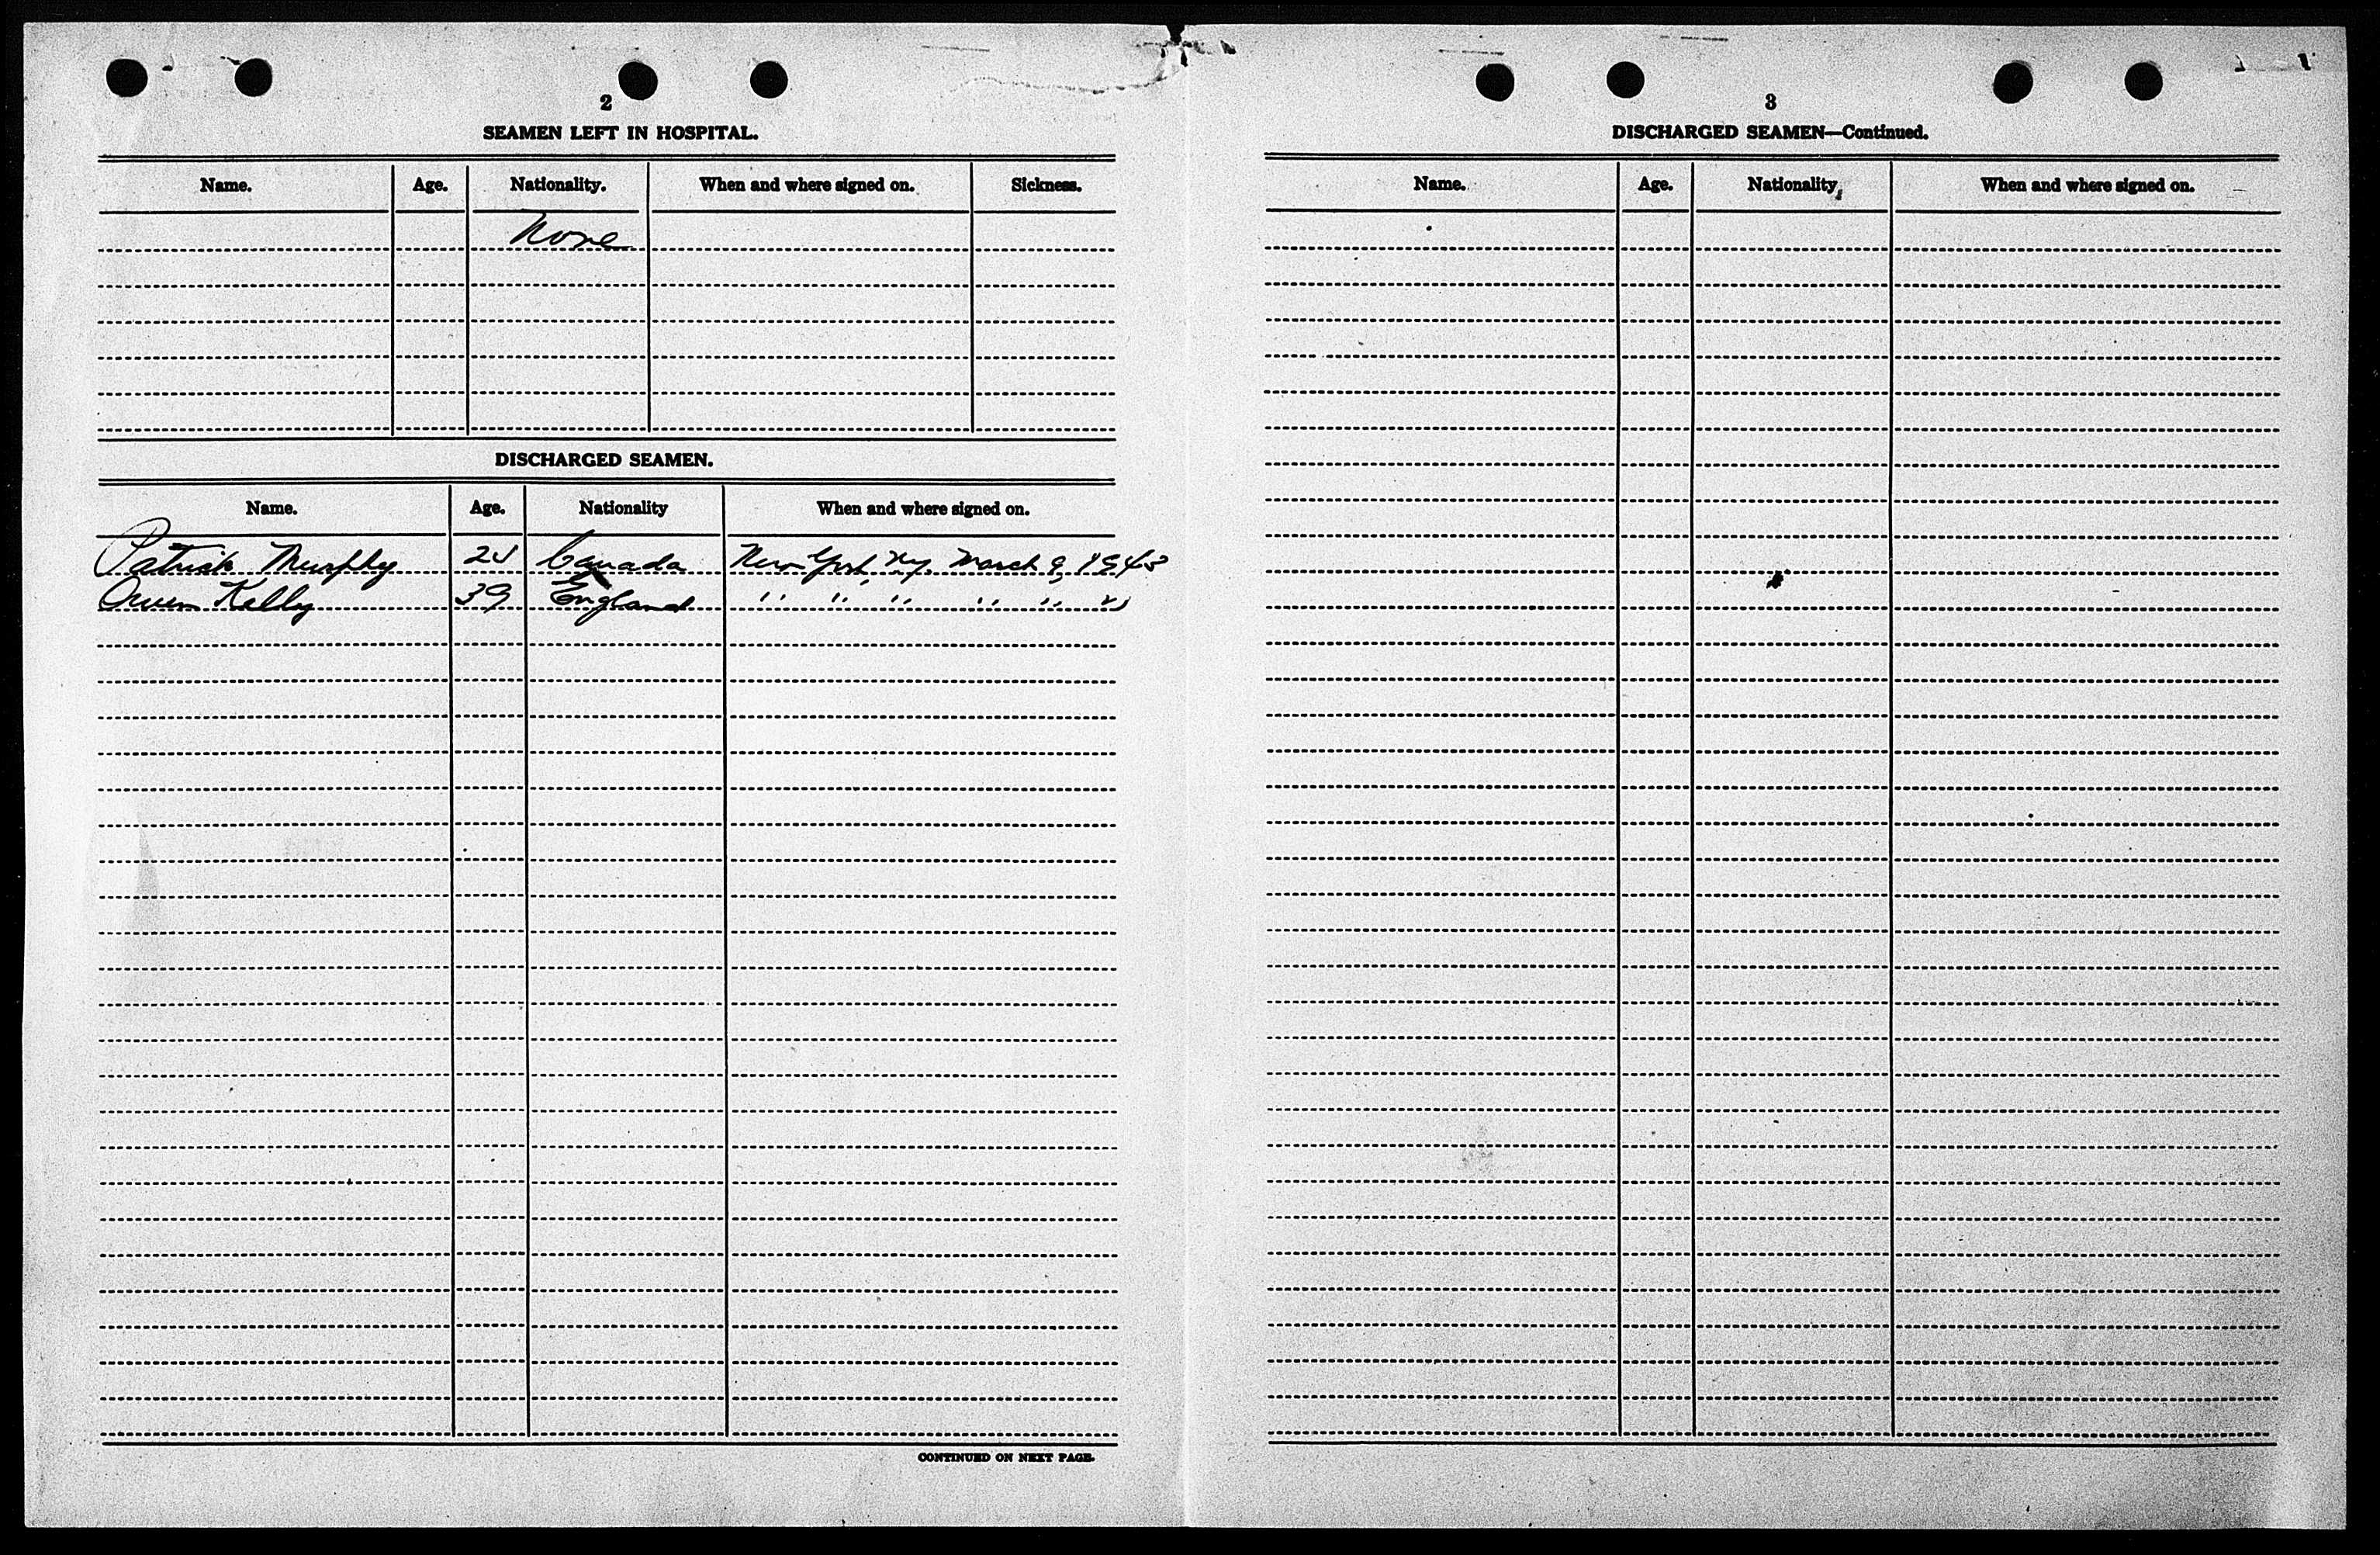 2
SEAMEN LEFT IN HOSPITAL.
Name. Age. Nationality. When and where signed on. Sickness.
None
DISCHARGED SEAMEN.
Name. Age. Nationality When and where signed on.
Patrick Murphy Canada New York, N.Y. March 9, 1943
Owen Kelly 39 England " " " " " "
CONTINUED ON NEXT PAGE.
3
DISCHARGED SEAMEN—Continued.
Name. Age. Nationality. When and where signed on.